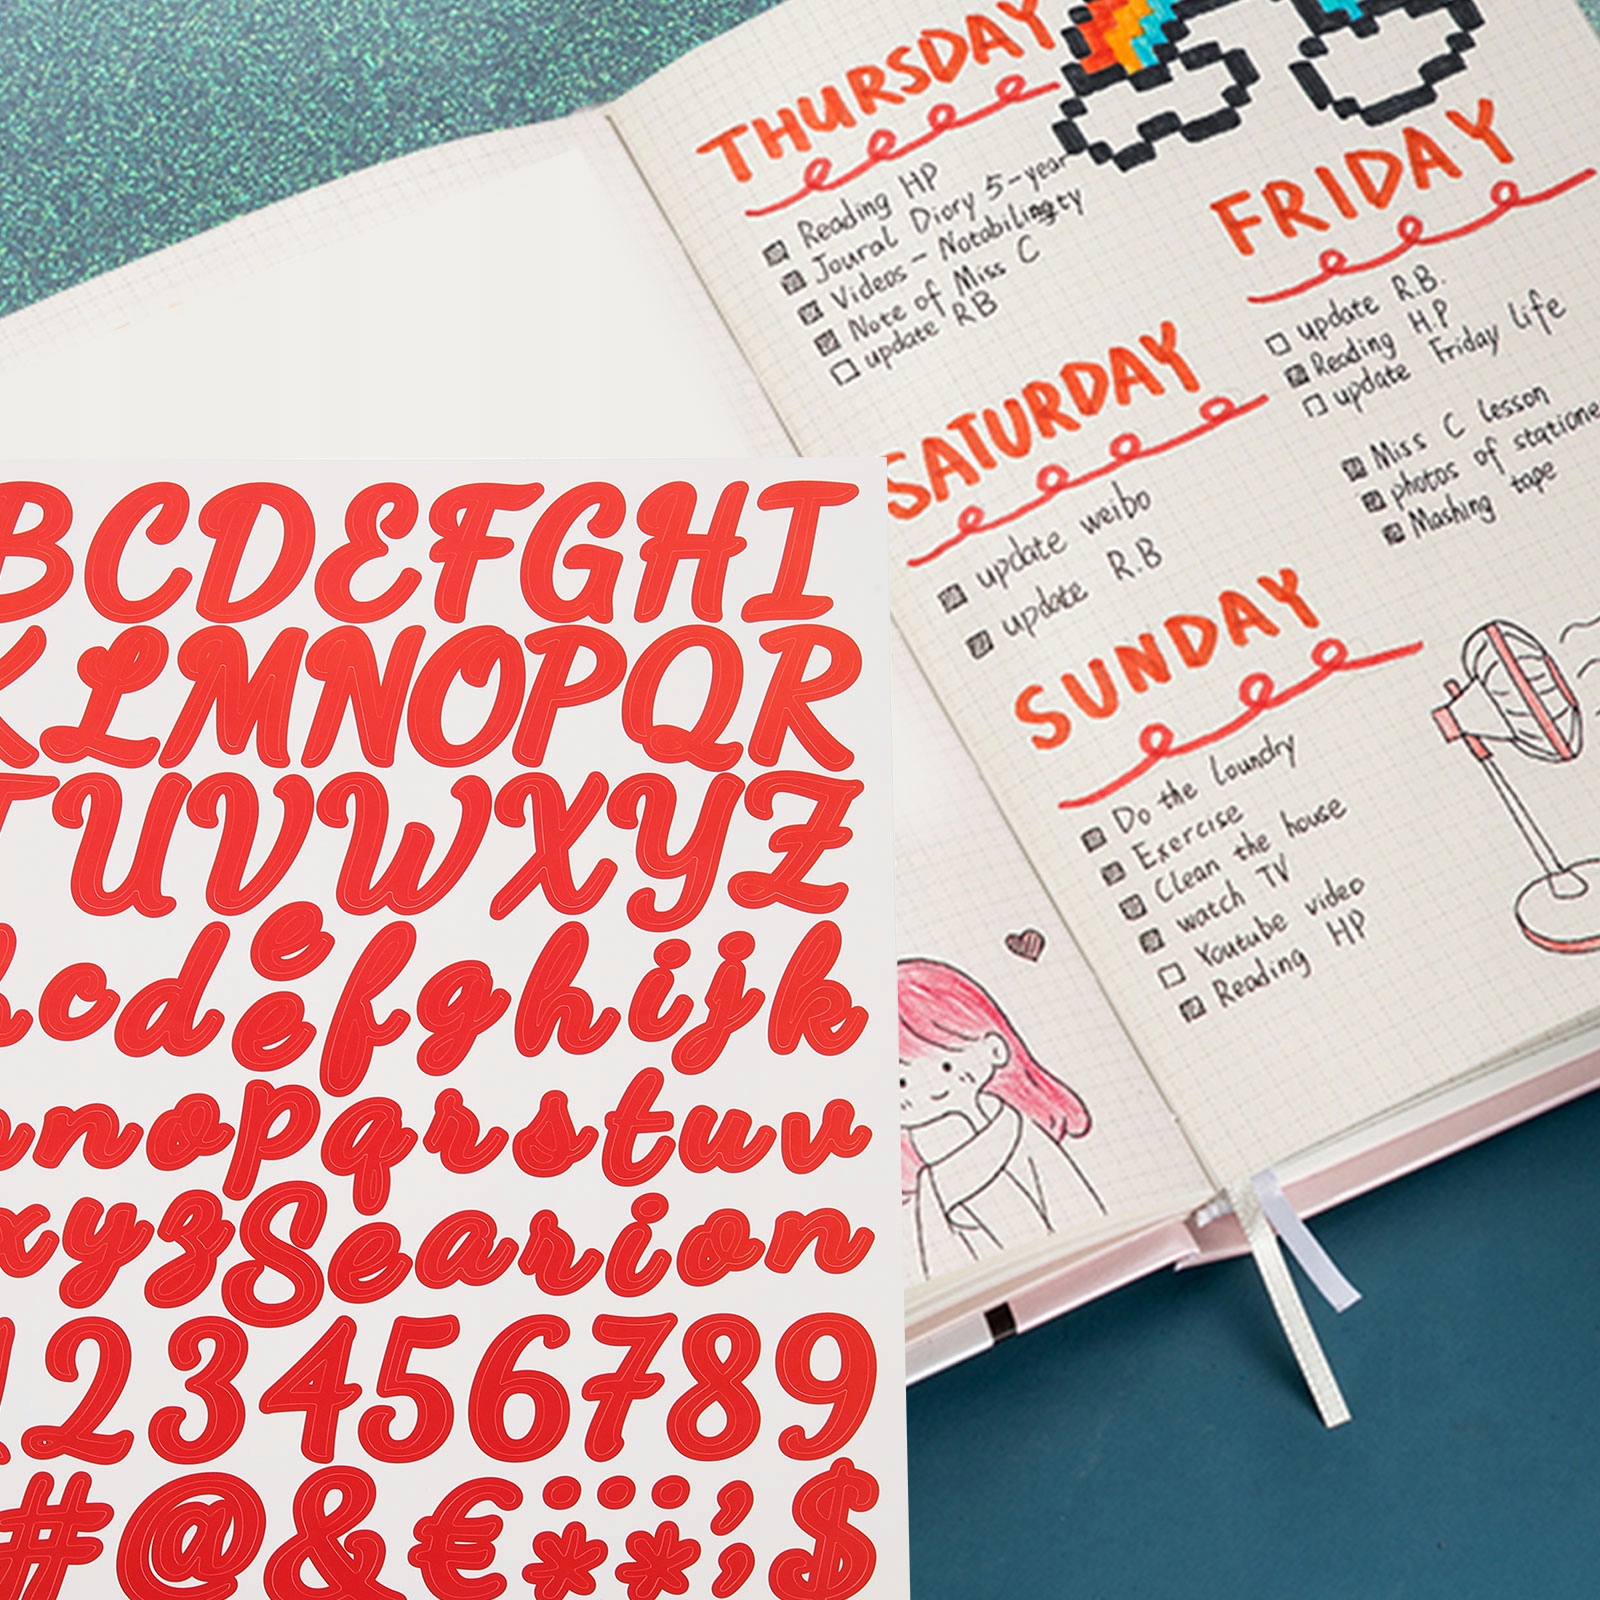 THURSDAY
Reading HP
Joural Diory 5-year
Videos - Notabilingty
Note of Miss C
update RB
FRIDAY
update R.B.
Reading H.P
update Friday life
Miss C lesson
photos of statione
Mashing tape
SATURDAY
update weibo
update R.B
SUNDAY
Do the loundry
Exercise
Clean the house
watch TV
Youtube video
Reading HP
BCDEFGHI
KLMNOPQR
TUVWXYZ
cdeefghijk
nopqrstuv
xyzSearion
123456789
#@&€**;$